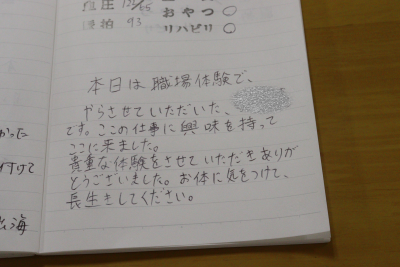 血圧 125/65
おやつ○
脈拍 93
リハビリ○
本日は職場体験で、
やらさせていただいた、
です。ここの仕事に興味を持って
ここに来ました。
貴重な体験をさせていただきありが
とうございました。お体に気をつけて、
長生きしてください。
かった
付けて